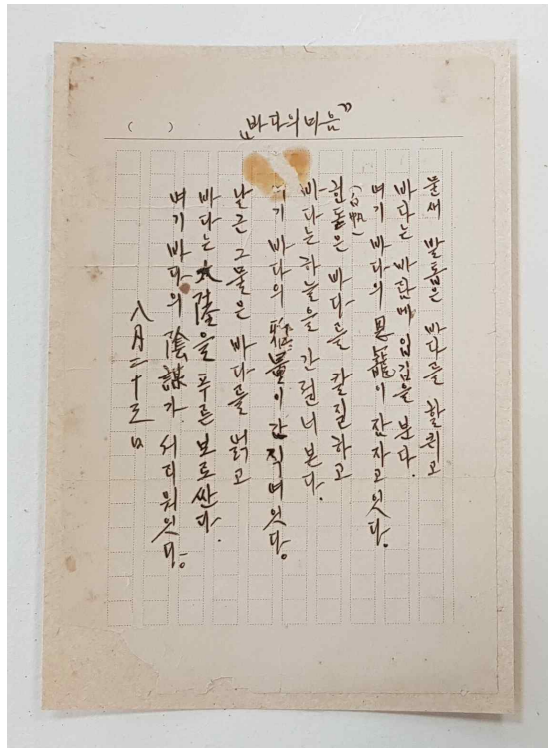 ( )
"바다의마음"
물새 발톱은 바다를 할퀴고
바다는 바람에 입김을 분다.
여기 바다의 恩寵이 잠자고잇다.
(白帆)
흰돛은 바다를 칼질하고
바다는 하늘을 간질너본다.
여기 바다의 雅量이 간직여잇다。
날근 그물은 바다를 얽고
바다는 大陸을 푸른 보로싼다.
여기 바다의 陰謀가 서리워잇다。
八月二十三日